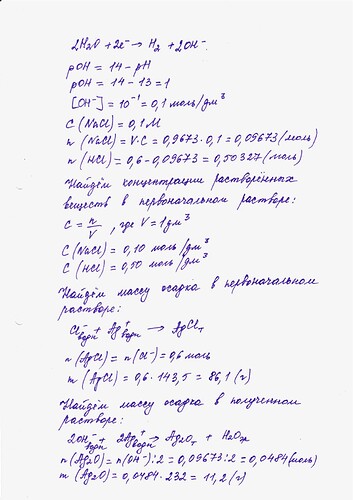 2H₂O + 2e⁻ → H₂ + 2OH⁻.
pOH = 14 - pH
pOH = 14 - 13 = 1
[OH⁻] = 10⁻¹ = 0,1 моль/дм³
C (NaCl) = 0,1 М
n (NaCl) = V·C = 0,9673·0,1 = 0,09673 (моль)
n (HCl) = 0,6 - 0,09673 = 0,50327 (моль)
Найдём концентрации растворённых
веществ в первоначальном растворе:
C = n/V , где V = 1дм³
C (NaCl) = 0,10 моль/дм³
C (HCl) = 0,50 моль/дм³
Найдём массу осадка в первоначальном
растворе:
Cl⁻водн + Ag⁺водн → AgClт
n (AgCl) = n (Cl⁻) = 0,6 моль
m (AgCl) = 0,6 · 143,5 = 86,1 (г)
Найдём массу осадка в полученном
растворе:
2OH⁻водн + 2Ag⁺водн → Ag₂Oт + H₂Oж
n (Ag₂O) = n (OH⁻) : 2 = 0,09673 : 2 = 0,0484 (моль)
m (Ag₂O) = 0,0484 · 232 = 11,2 (г)